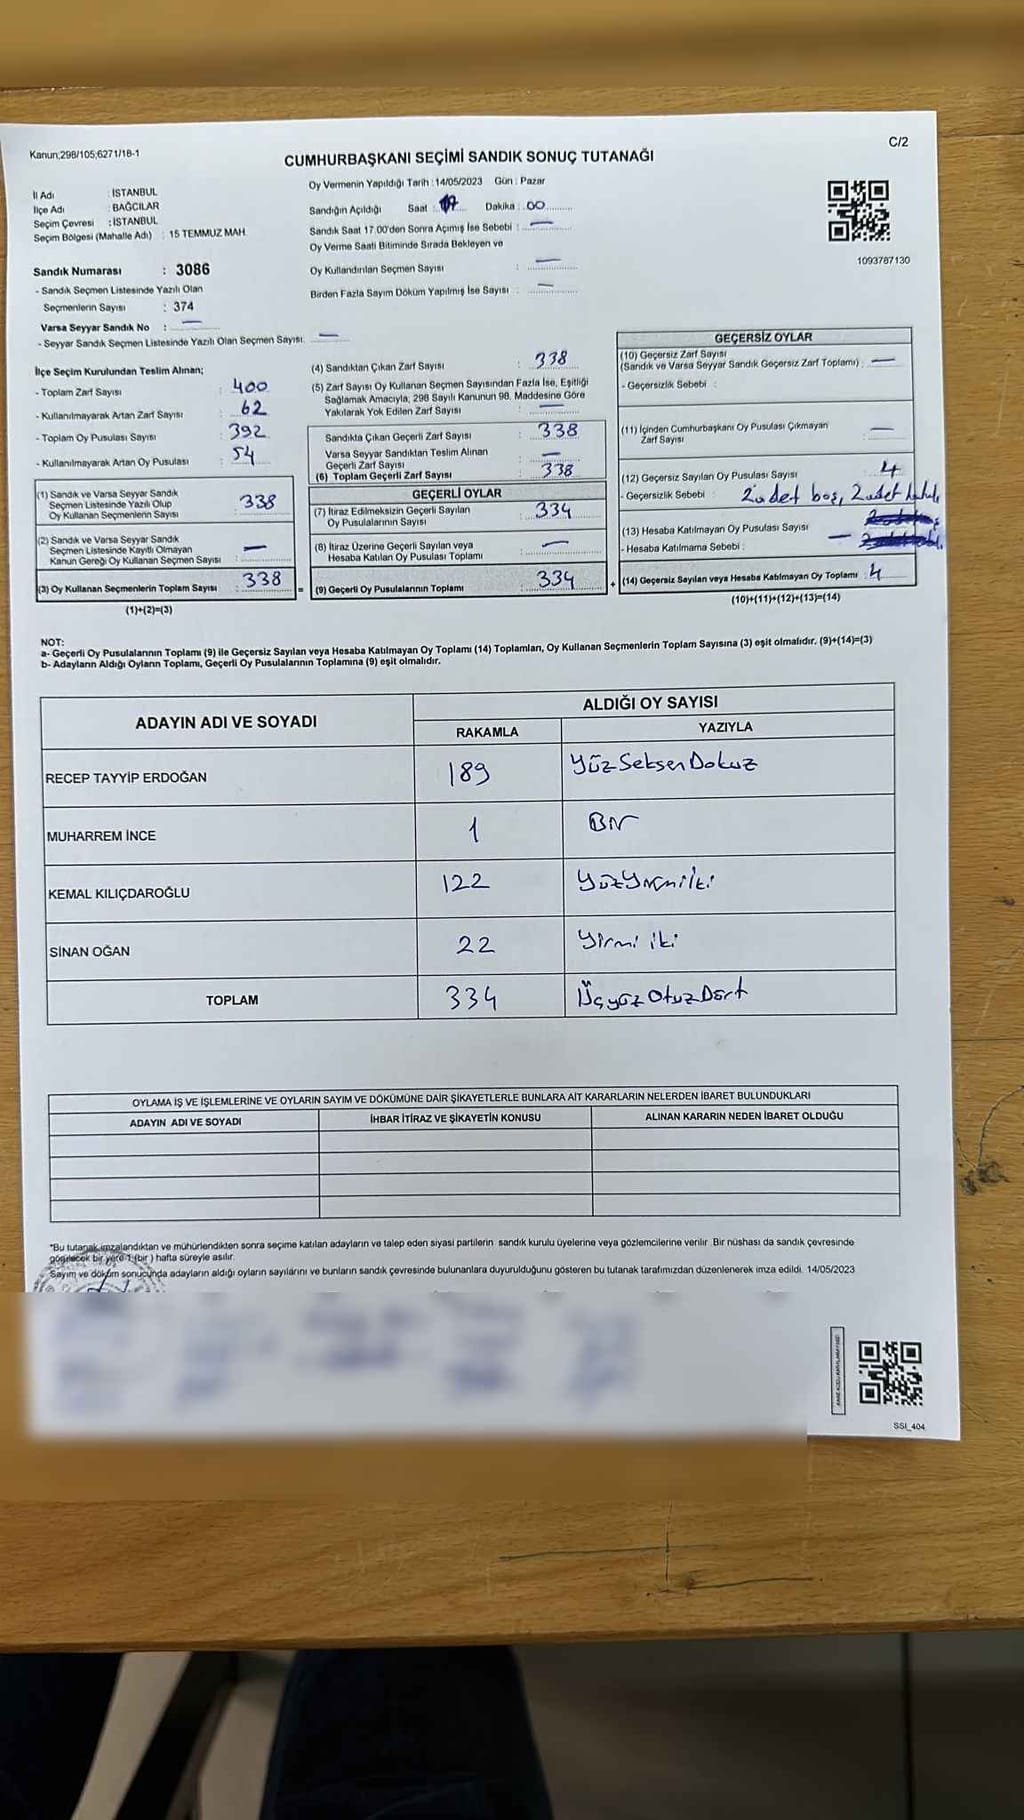 Kanun;298/105;6271/18-1
C/2
CUMHURBAŞKANI SEÇİMİ SANDIK SONUÇ TUTANAĞI
İl Adı : İSTANBUL
İlçe Adı : BAĞCILAR
Seçim Çevresi : İSTANBUL
Seçim Bölgesi (Mahalle Adı) : 15 TEMMUZ MAH.
Oy Vermenin Yapıldığı Tarih : 14/05/2023 Gün : Pazar
Sandığın Açıldığı Saat : 17 Dakika : 00
Sandık Saat 17.00'den Sonra Açımış İse Sebebi : —
Oy Verme Saati Bitiminde Sırada Bekleyen ve
Oy Kullandırılan Seçmen Sayısı : —
Birden Fazla Sayım Döküm Yapılmış İse Sayısı : —
1093787130
Sandık Numarası : 3086
- Sandık Seçmen Listesinde Yazılı Olan
Seçmenlerin Sayısı : 374
Varsa Seyyar Sandık No : —
- Seyyar Sandık Seçmen Listesinde Yazılı Olan Seçmen Sayısı: —
İlçe Seçim Kurulundan Teslim Alınan;
- Toplam Zarf Sayısı : 400
- Kullanılmayarak Artan Zarf Sayısı : 62
- Toplam Oy Pusulası Sayısı : 392
- Kullanılmayarak Artan Oy Pusulası : 54
(1) Sandık ve Varsa Seyyar Sandık
Seçmen Listesinde Yazılı Olup
Oy Kullanan Seçmenlerin Sayısı : 338
(2) Sandık ve Varsa Seyyar Sandık
Seçmen Listesinde Kayıtlı Olmayan
Kanun Gereği Oy Kullanan Seçmen Sayısı : —
(3) Oy Kullanan Seçmenlerin Toplam Sayısı : 338
(1)+(2)=(3)
(4) Sandıktan Çıkan Zarf Sayısı : 338
(5) Zarf Sayısı Oy Kullanan Seçmen Sayısından Fazla İse, Eşitliği
Sağlamak Amacıyla, 298 Sayılı Kanunun 98. Maddesine Göre
Yakılarak Yok Edilen Zarf Sayısı : —
Sandıkta Çıkan Geçerli Zarf Sayısı : 338
Varsa Seyyar Sandıktan Teslim Alınan
Geçerli Zarf Sayısı : —
(6) Toplam Geçerli Zarf Sayısı : 338
GEÇERLİ OYLAR
(7) İtiraz Edilmeksizin Geçerli Sayılan
Oy Pusulalarının Sayısı : 334
(8) İtiraz Üzerine Geçerli Sayılan veya
Hesaba Katılan Oy Pusulası Toplamı : —
(9) Geçerli Oy Pusulalarının Toplamı : 334
GEÇERSİZ OYLAR
(10) Geçersiz Zarf Sayısı
(Sandık ve Varsa Seyyar Sandık Geçersiz Zarf Toplamı) : —
- Geçersizlik Sebebi :
(11) İçinden Cumhurbaşkanı Oy Pusulası Çıkmayan
Zarf Sayısı : —
(12) Geçersiz Sayılan Oy Pusulası Sayısı : 4
- Geçersizlik Sebebi : 2 adet boş, 2 adet
(13) Hesaba Katılmayan Oy Pusulası Sayısı : —
- Hesaba Katılmama Sebebi :
(14) Geçersiz Sayılan veya Hesaba Katılmayan Oy Toplamı : 4
(10)+(11)+(12)+(13)=(14)
NOT:
a- Geçerli Oy Pusulalarının Toplamı (9) ile Geçersiz Sayılan veya Hesaba Katılmayan Oy Toplamı (14) Toplamları, Oy Kullanan Seçmenlerin Toplam Sayısına (3) eşit olmalıdır. (9)+(14)=(3)
b- Adayların Aldığı Oyların Toplamı, Geçerli Oy Pusulalarının Toplamına (9) eşit olmalıdır.
ADAYIN ADI VE SOYADI
ALDIĞI OY SAYISI
RAKAMLA YAZIYLA
RECEP TAYYİP ERDOĞAN 189 YüzSeksenDokuz
MUHARREM İNCE 1 Bir
KEMAL KILIÇDAROĞLU 122 YüzYirmiİki
SİNAN OĞAN 22 Yirmi iki
TOPLAM 334 ÜçyüzOtuzDört
OYLAMA İŞ VE İŞLEMLERİNE VE OYLARIN SAYIM VE DÖKÜMÜNE DAİR ŞİKAYETLERLE BUNLARA AİT KARARLARIN NELERDEN İBARET BULUNDUKLARI
ADAYIN ADI VE SOYADI İHBAR İTİRAZ VE ŞİKAYETİN KONUSU ALINAN KARARIN NEDEN İBARET OLDUĞU
*Bu tutanak imzalandıktan ve mühürlendikten sonra seçime katılan adayların ve talep eden siyasi partilerin sandık kurulu üyelerine veya gözlemcilerine verilir. Bir nüshası da sandık çevresinde
görülecek bir yere 1 (bir ) hafta süreyle asılır.
Sayım ve döküm sonucunda adayların aldığı oyların sayılarını ve bunların sandık çevresinde bulunanlara duyurulduğunu gösteren bu tutanak tarafımızdan düzenlenerek imza edildi. 14/05/2023
SSI_404